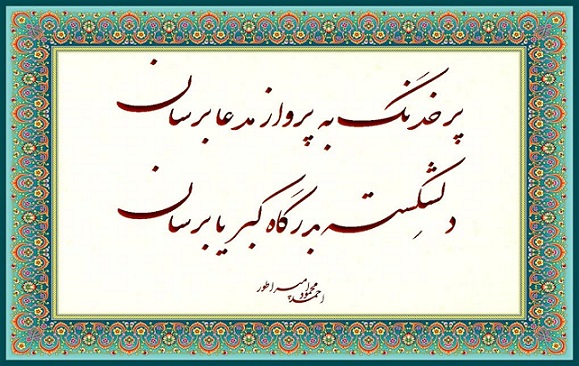 پر خدنگ به پرواز مدعا برسان
دلشکسته بدرگاه کبریا برسان
احمد محمود امپراطور